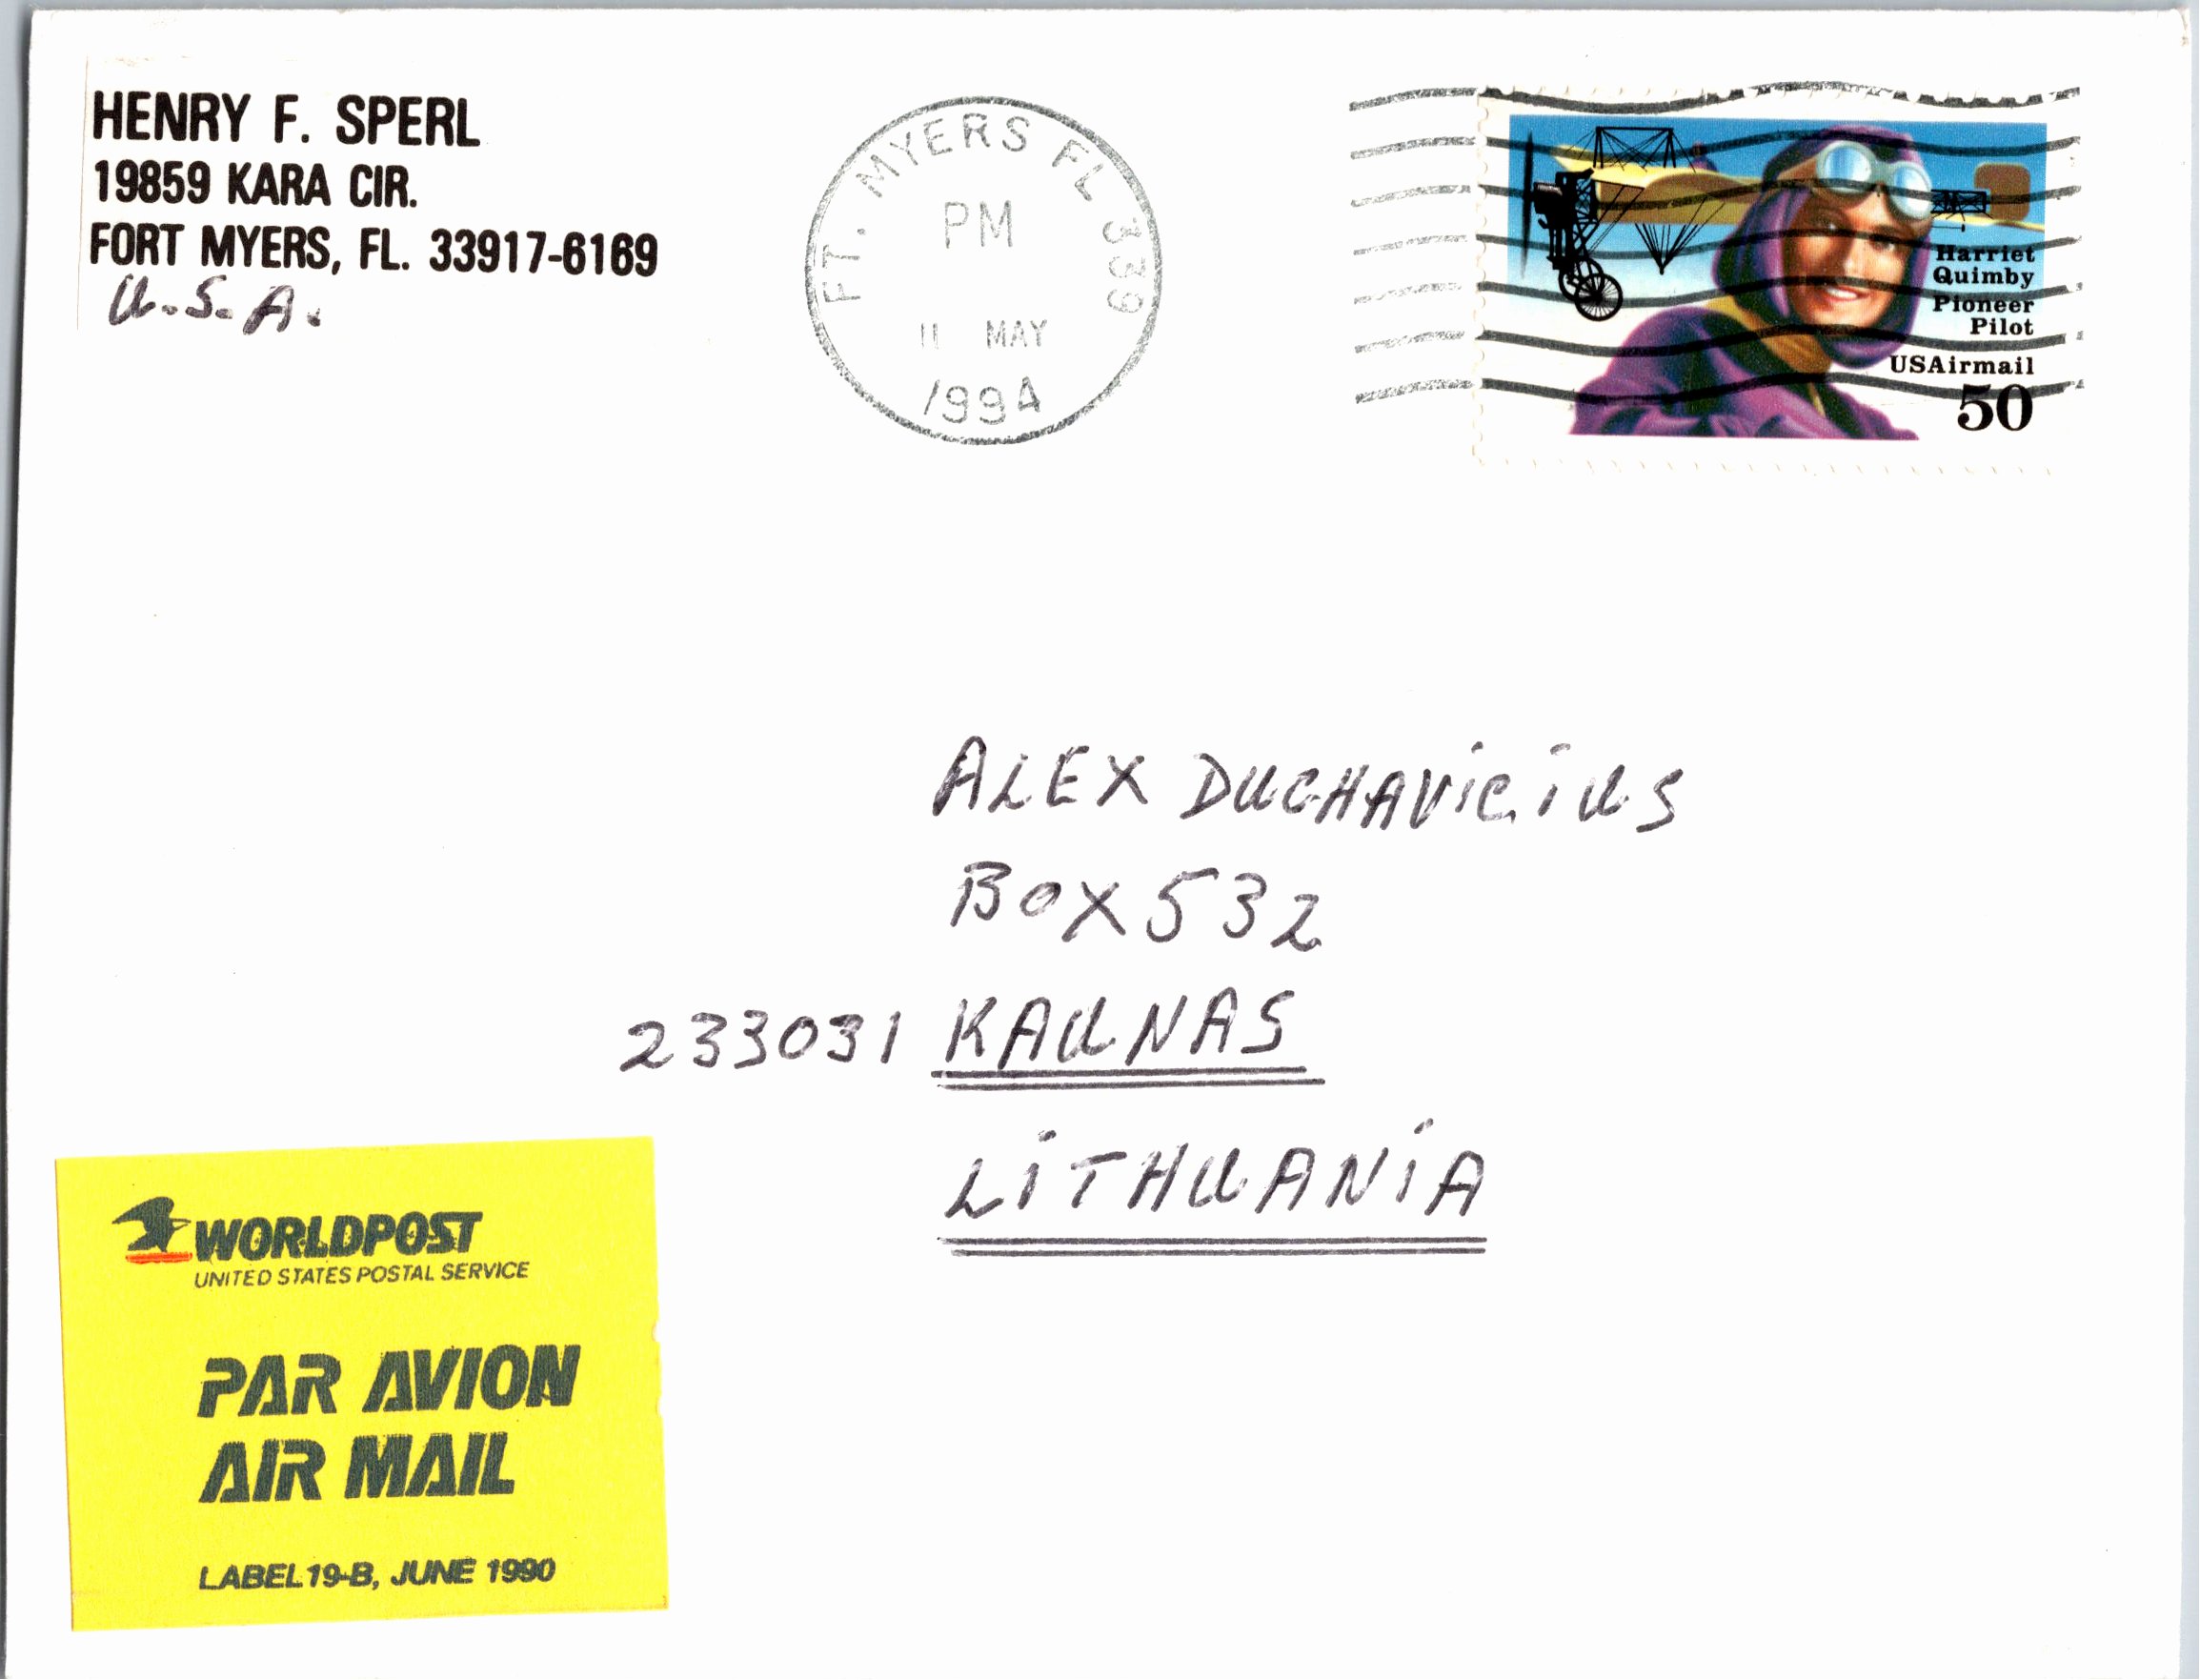 HENRY F. SPERL
19859 KARA CIR.
FORT MYERS, FL. 33917-6169
U.S.A.
FT. MYERS FL 339
PM
11 MAY
1994
Harriet
Quimby
Pioneer
Pilot
USAirmail
50
ALEX DUCHAViCiUS
BOX 532
233031 KAUNAS
LiTHUANiA
WORLDPOST
UNITED STATES POSTAL SERVICE
PAR AVION
AIR MAIL
LABEL 19-B, JUNE 1990